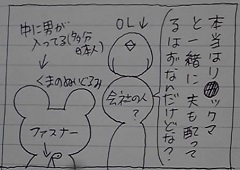 本当はリックマ
と一緒に夫も配って
るはずなんだけどな?
OL
会社の人
?
中に男が
入ってる(多分
日本人)
くまのぬいぐるみ
ファスナー